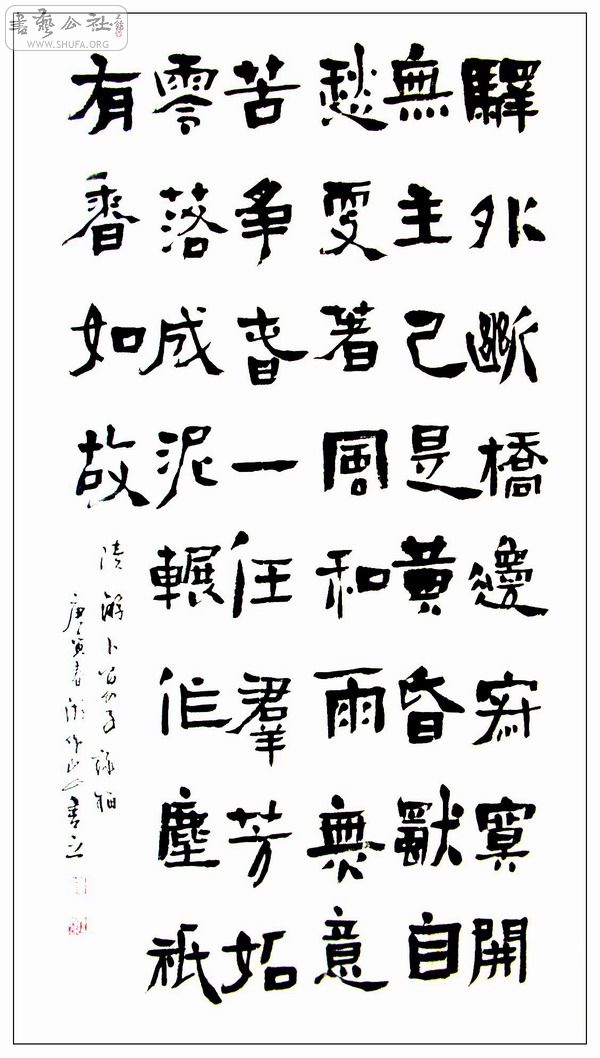 書藝公社
WWW.SHUFA.ORG
驛外斷橋邊寂寞開
無主已是黃昏獨自
愁更著風和雨無意
苦爭春一任羣芳妬
零落成泥輾作塵祇
有香如故
陸游卜算子詠梅
庚寅春書之